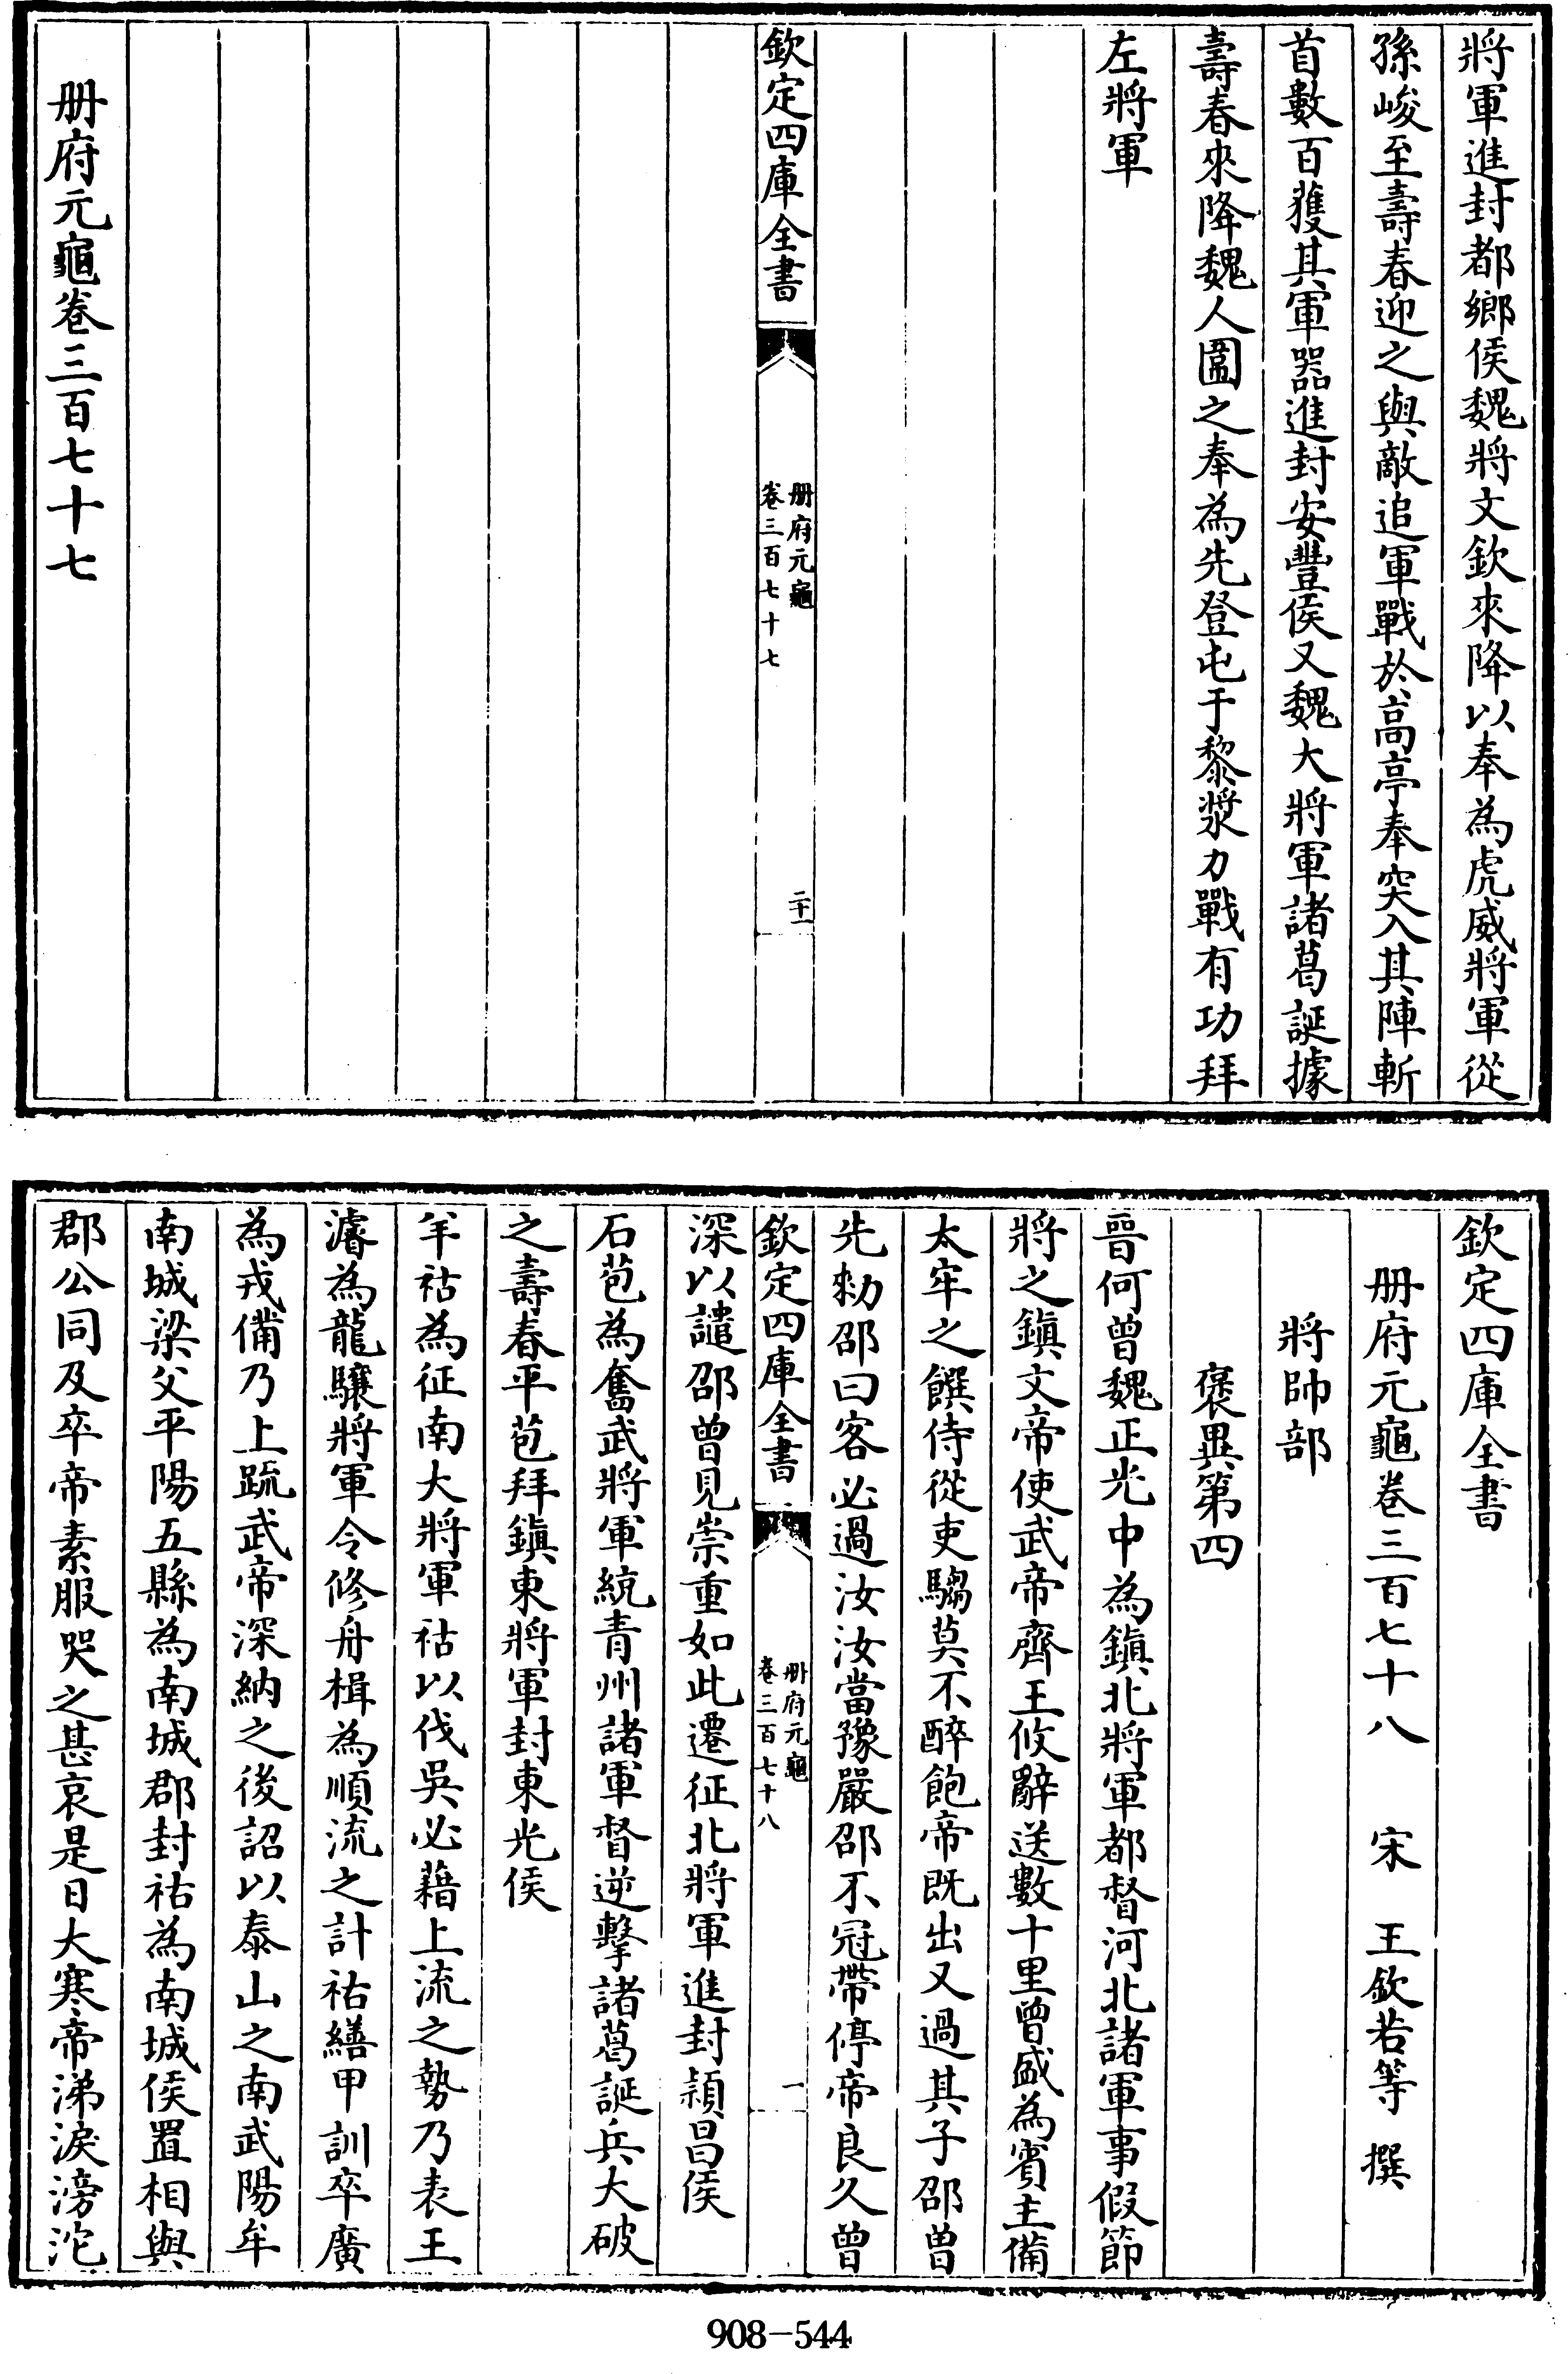 將軍進封都鄉侯魏將文欽來降以奉為虎威將軍從
孫峻至壽春迎之與敵追軍戰於高亭奉突入其陣斬
首數百獲其軍器進封安豐侯又魏大將軍諸葛誕據
壽春來降魏人圍之奉為先登屯于黎漿力戰有功拜
左將軍
欽定四庫全書
册府元龜
卷三百七十七
二十一
册府元龜卷三百七十七
欽定四庫全書
册府元龜卷三百七十八 宋 王欽若等 撰
將帥部
褒異第四
晉何曾魏正光中為鎮北將軍都督河北諸軍事假節
將之鎮文帝使武帝齊王攸辭送數十里曾盛為賓主備
太牢之饌侍從吏騶莫不醉飽帝既出又過其子邵曾
先勑邵曰客必過汝汝當豫嚴邵不冠帶停帝良久曾
欽定四庫全書
册府元龜
卷三百七十八
一
深以譴邵曾見崇重如此遷征北將軍進封潁昌侯
石苞為奮武將軍統青州諸軍督逆擊諸葛誕兵大破
之壽春平苞拜鎮東將軍封東光侯
羊祜為征南大將軍祜以伐吳必藉上流之勢乃表王
濬為龍驤將軍令修舟楫為順流之計祜繕甲訓卒廣
為戎備乃上疏武帝深納之後詔以泰山之南武陽牟
南城梁父平陽五縣為南城郡封祜為南城侯置相與
郡公同及卒帝素服哭之甚哀是日大寒帝涕淚滂沱
908-544